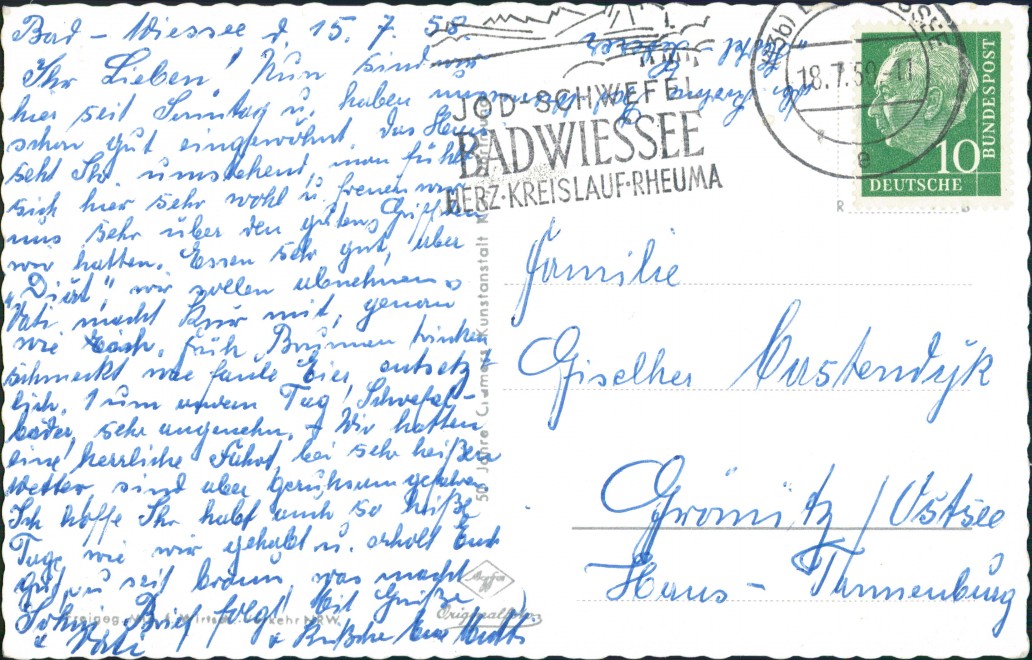 Bad-Wiessee d. 15. 7. 58.
Ihr Lieben! Nun sind wir
hier seit Sonntag u. haben uns
schon gut eingewöhnt. Das Haus
seht Ihr umstehend, man fühlt
sich hier sehr wohl u. freuen wir
uns sehr über den guten Griff den
wir hatten. Essen sehr gut, aber
"Diät", wir wollen abnehmen
Vati macht Kur mit, genau
wie ich, früh Brunnen trinken
schmeckt wie faule Eier, entsetz-
lich, 1 um andern Tag Schwefel-
bäder, sehr angenehm. - Wir hatten
eine herrliche Fahrt, bei sehr heißem
Wetter, sind aber geruhsam gefahren
Ich hoffe Ihr habt auch so heiße
Tage wie wir gehabt u. erholt Euch
gut, u. seit braun, was macht
Brief folgt! Mit Grüße
u. Küsschen Eure Mutti
u Vati
JOD-SCHWEFEL
BAD WIESSEE
HERZ·KREISLAUF·RHEUMA
18.7.58-11
e
10
DEUTSCHE
BUNDESPOST
Familie
Giselher Kastendyk
Grömitz / Ostsee
Haus - Tannenburg
50 Jahre Cramers Kunstanstalt
Agfa
Originalfoto